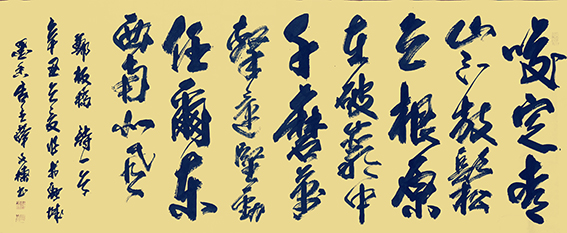 咬定青
山不放鬆
立根原
在破岩中
千磨萬
擊還堅勁
任爾東
西南北風
鄭板橋 詩一首
辛丑之夏
墨香居主